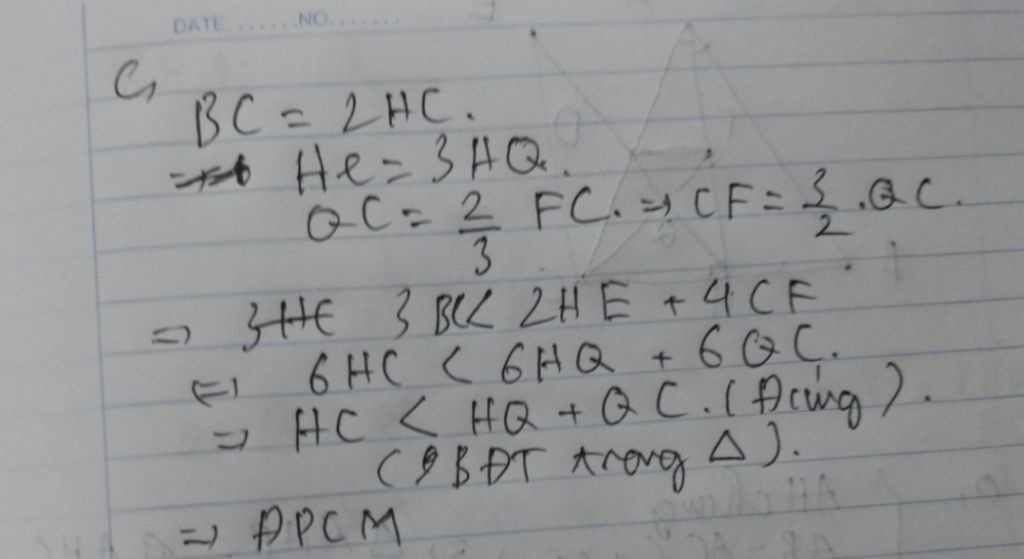 DATE.......NO........
C,
BC = 2HC.
He = 3HQ.
QC = 2/3 FC. => CF = 3/2 .QC.
=> 3BC < 2HE + 4CF
<=> 6HC < 6HQ + 6QC.
=> HC < HQ + QC. (
(BĐT trong Δ).
=> ĐPCM